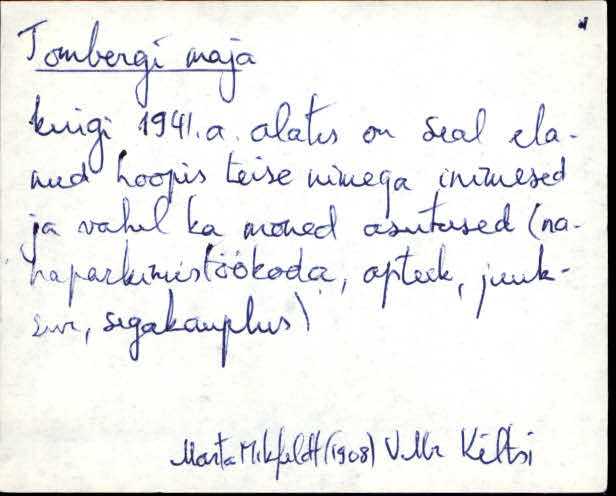 Tombergi maja
kuigi 1941.a. alates on seal ela-
nud hoopis teise nimega inimesed
ja vahel ka mõned asutused (na-
haparkimistöökoda, apteek, juuk-
sur, segakauplus)
Marta Mikfeldt (1908) V.Mr Kiltsi